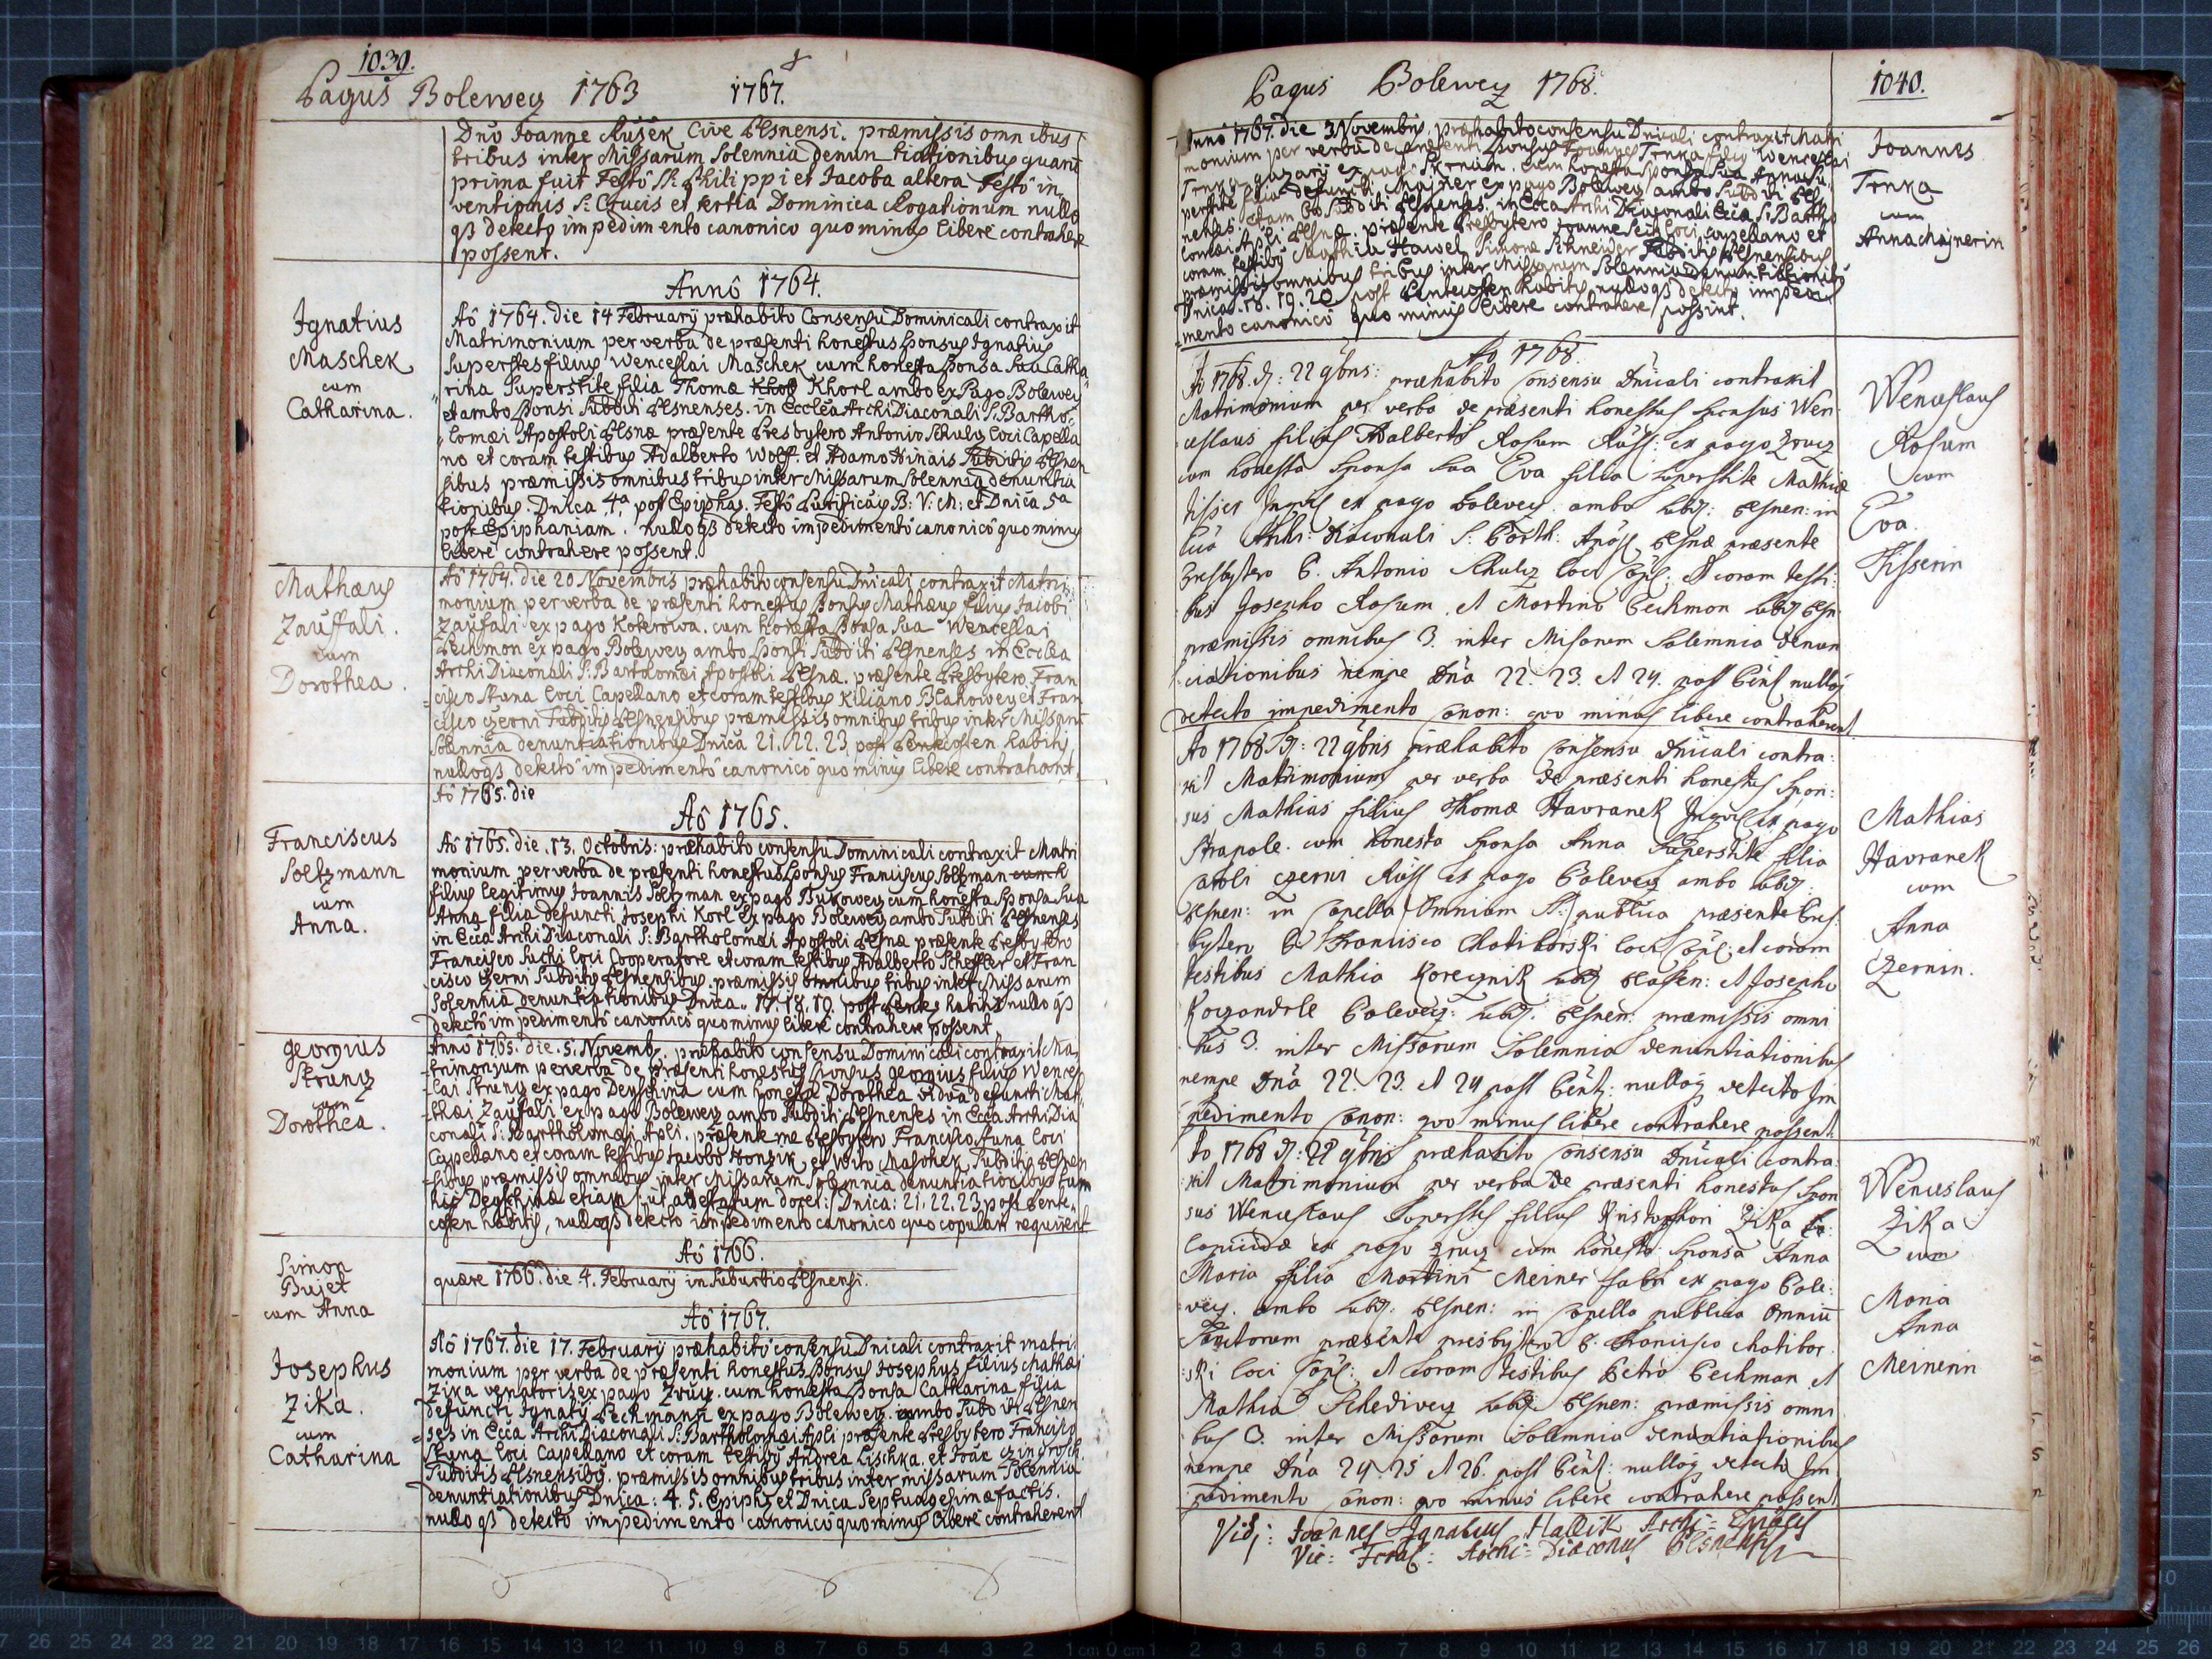 1039.
Pagus Bolewey 1763 1767.
Dno Joanne Rušek Cive Plsnensi. præmissis omnibus
tribus inter Missarum Solennia denuntiationibus quarū
prima fuit Festô SS. Philippi et Jacobi altera Festô in
ventionis S: Crucis et tertia Dominica Rogationum nullo
qs detecto impedimento canonico quo minus libere contrahere
possent.
Annô 1764.
Ignatius
Maschek
cum
Catharina.
Aô 1764. die 14 Februarij præhabito Consensu Dominicali contraxit
Matrimonium per verba de præsenti honestus Sponsus Ignatius
Superstes filius Wenceslai Maschek cum honesta Sponsa Sua Catha
rina Superstite filia Thomæ Khorl ambo ex Pago Bolewey
et ambo Sponsi Subditi Plsnenses. in Ecclea ArchiDiaconali S: Bartho
lomæi Apostoli Plsnæ præsente Presbytero Antonio Schulz loci Capella
no et coram testibus Adalberto Wolf. et Adamo Hinais Subditis Plsnen
sibus præmissis omnibus tribus inter Missarum Solennia denuntia
tionibus. Dnica 4ta post Epipha. Festô Purificãis B: V: M: et Dnica 5a
post Epiphaniam. nullo qs detecto impedimentô canonicô quo minus
liberè contrahere possent.
Mathæus
Zauffali.
cum
Dorothea.
Aô 1764. die 20 Novembris præhabito consensu Dnicali contraxit Matri
monium per verba de præsenti honestus Sponsus Mathæus filius Jacobi
Zaufali ex pago Koterowa. cum honesta Sponsa Sua Wenceslai
Pechmon ex pago Bolewey ambo Sponsi Subditi Plsnenses in Ecclea
ArchiDiaconali S: Bartolomæi Apostoli Plsnæ. præsente Presbytero Fran
cisco Skuna loci Capellano et coram testibus Kiliano Blahowey et Fran
cisco Czerni Subditis Plsnensibus præmissis omnibus tribus inter Missarū
Solennia denuntiationibus Dnica 21. 22. 23. post Pentecosten habitis
nulloqs detectô impedimentô canonicô quo minus libere contrahant.
Aô 1765. die
Aô 1765.
Franciscus
Soltzmann
cum
Anna.
Aô 1765. die. 13. Octobris: præhabito consensu Dominicali contraxit Matri
monium per verba de præsenti honestus Sponsus Franciscus Soltzman
filius legitimus Joannis Soltzman ex pago Bukowey cum honesta Sponsa Sua
Anna filia defuncti Josephi Korl ex pago Bolewey ambo Subditi Plsnenses
in Ecca ArchiDiaconali S: Bartholomæi Apostoli Plsnæ præsente Presbytero
Francisco Suchi loci Cooperatore et coram testibus Adalberto Scheffler et Fran
cisco Czerni Subditis Plsnensibus. præmissis omnibus tribus inter Missarum
Solennia denuntiationibus Dnica. 17. 18. 19. post Pentec: habitis nullo qs
detectô impedimentô canonicô quo minus liberè contrahere possent.
Georgius
Strunz
cum
Dorothea.
Annô 1765. die. 5. Novemb. præhabito consensu Dominicali contraxit Ma
trimonium per verba de præsenti honestus Sponsus Georgius filius Wences
lai Strunz ex pago Deyschina cum honesta Dorothea vidua defuncti Mat
thæi Zaufali ex pago Bolewey ambo Subditi Plsnenses in Ecca ArchiDia
conali S: Bartholomæi Apli. præsente me Presbytero Francisco Skuna loci
Capellano et coram testibus Jacobo Honzik et Wito Maschek Subditis Plsnen
sibus præmissis omnibus inter Missarum Solemnia denuntiationibus tum
hic Deyschinæ etiam ut attestatum docet: Dnica: 21. 22. 23 post Pente
costen habitis, nulloqs detecto impedimento canonico quo copulari requirent
Simon
Bujet
cum Anna
Aô 1766.
quære 1766. die 4. Februarij in Suburbio Plsnensi.
Aô 1767.
Josephus
Zika.
cum
Catharina
Aô 1767. die 17. February præhabitô consensu Dnicali contraxit matri
monium per verba de præsenti honestus Sponsus Josephus filius Mathæi
Zika venatoris ex pago Zrucz. cum honesta Sponsa Catharina filia
defuncti Ignatij Pechmann ex pago Bolewey. ambo Subditi Plsnen
ses in Ecca ArchiDiaconali S: Bartholomæi Apli præsente Presbytero Francisco
Skuna loci Capellano et coram testibus Andrea Lischka. et
Subditis Plsnensibus. præmissis omnibus tribus inter missarum Solennia
denuntiationibus Dnica: 4. 5. Epiph: et Dnica Septuagesimæ factis.
nullo qs detectô impedimento canonicô quo minus libere contraherent
Pagus Bolewey 1768.
1040.
Annô 1767. die 3 Novembris, præhabito consensu Dnicali contraxit Matri
monium per verba de præsenti Sponsus Joannes Trnka filius Wenceslai
Trnka ex pago cum honesta Sponsa Sua Anna Su
perstite filia defuncti Majner ex pago Bolewey ambo Subditi Pls
nenses in Ecca Archi Diaconali S: Bartho
lomæi Apli Plsnæ. præsente Presbytero Joanne loci capellano et
coram testibus Mathia Hawel Simone Schneider Subditis Plsnensibus
præmissis omnibus tribus inter Missarum Solennia denuntiationibus
Dnica. 18. 19. 20 post Pentecosten habitis nulloqs detecto impedi
mento canonicô quo minus libere contrahere possint.
Joannes
Trnka
cum
Anna Majnerin
Ao 1768.
Ao 1768. D: 22 9bris: præhabito consensu Dnicali contraxit
Matrimonium per verba de præsenti honestus Sponsus Wen
ceslaus filius Adalberti Rosum Rust: ex pago Zrucz
cum honesta Sponsa sua Eva filia superstite Mathiæ
Tisser ex pago Bolevey. ambo subd: Plsnen: in
Ecca Archi: Diaconali S: Barth: Apost Plsnæ præsente
Presbytero P. Antonio Schulz loci Capl: et coram testi:
bus Josepho Rosum et Martino Pechmon subd: Plsn:
præmissis omnibus 3. inter Missarum Solemnia denun
ciationibus nempe Dnâ 22. 23. et 24. post Pent: nulloq
detecto impedimento Canon: quo minus libere contraherent
Wenceslaus
Rosum
cum
Eva
Tisserin
Ao 1768 D: 22 9bris præhabito consensu Dnicali contra
xit Matrimonium per verba de præsenti honestus Spon:
sus Mathias filius Thomæ Havranek ex pago
Strapole. cum honesta Sponsa Anna Superstite filia
Caroli Czerni Rust ex pago Bolevecz ambo subd:
Plsnen: in Capella Omnium SS: publica præsente Pres:
bytero P. Francisco Chotiborski loci Capl: et coram
testibus Mathia Koreynik subd: Plassen: et Josepho
Kozandrle Bolevey: subd: Plsnen: præmissis omni
bus 3. inter Missarum Solemnia denuntiationibus
nempe Dnâ 22. 23. et 24 post Pent: nulloq detecto Im
pedimento Canon: quo minus libere contrahere possent
Mathias
Havranek
cum
Anna
Czernin.
Ao 1768 D: 22 9bris præhabito consensu Dnicali contra
xit Matrimonium per verba de præsenti honestus Spon
sus Wenceslaus Superstes filius Kristophori Zika
Lapicidæ ex pago Zrucz cum honesta Sponsa Anna
Maria filia Martini Meiner fabri ex pago Bole:
vey. ambo subd: Plsnen: in Capella publica Omniū
Sanctorum præsente presbytero P. Francisco Chotibor
ski loci Capl: et coram testibus Petro Pechman et
Mathia Schedivey subd: Plsnen: præmissis omni
bus 3. inter Missarum Solemnia denuntiationibus
nempe Dnâ 24. 25 et 26. post Pent: nulloq detecto Im
pedimento Canon: quo minus libere contrahere possent
Wenceslaus
Zika
cum
Maria
Anna
Meinerin
Vidi: Joannes Ignatius Hallik Archi=
Vic: Foran: Archi=Diaconus Plsnensis